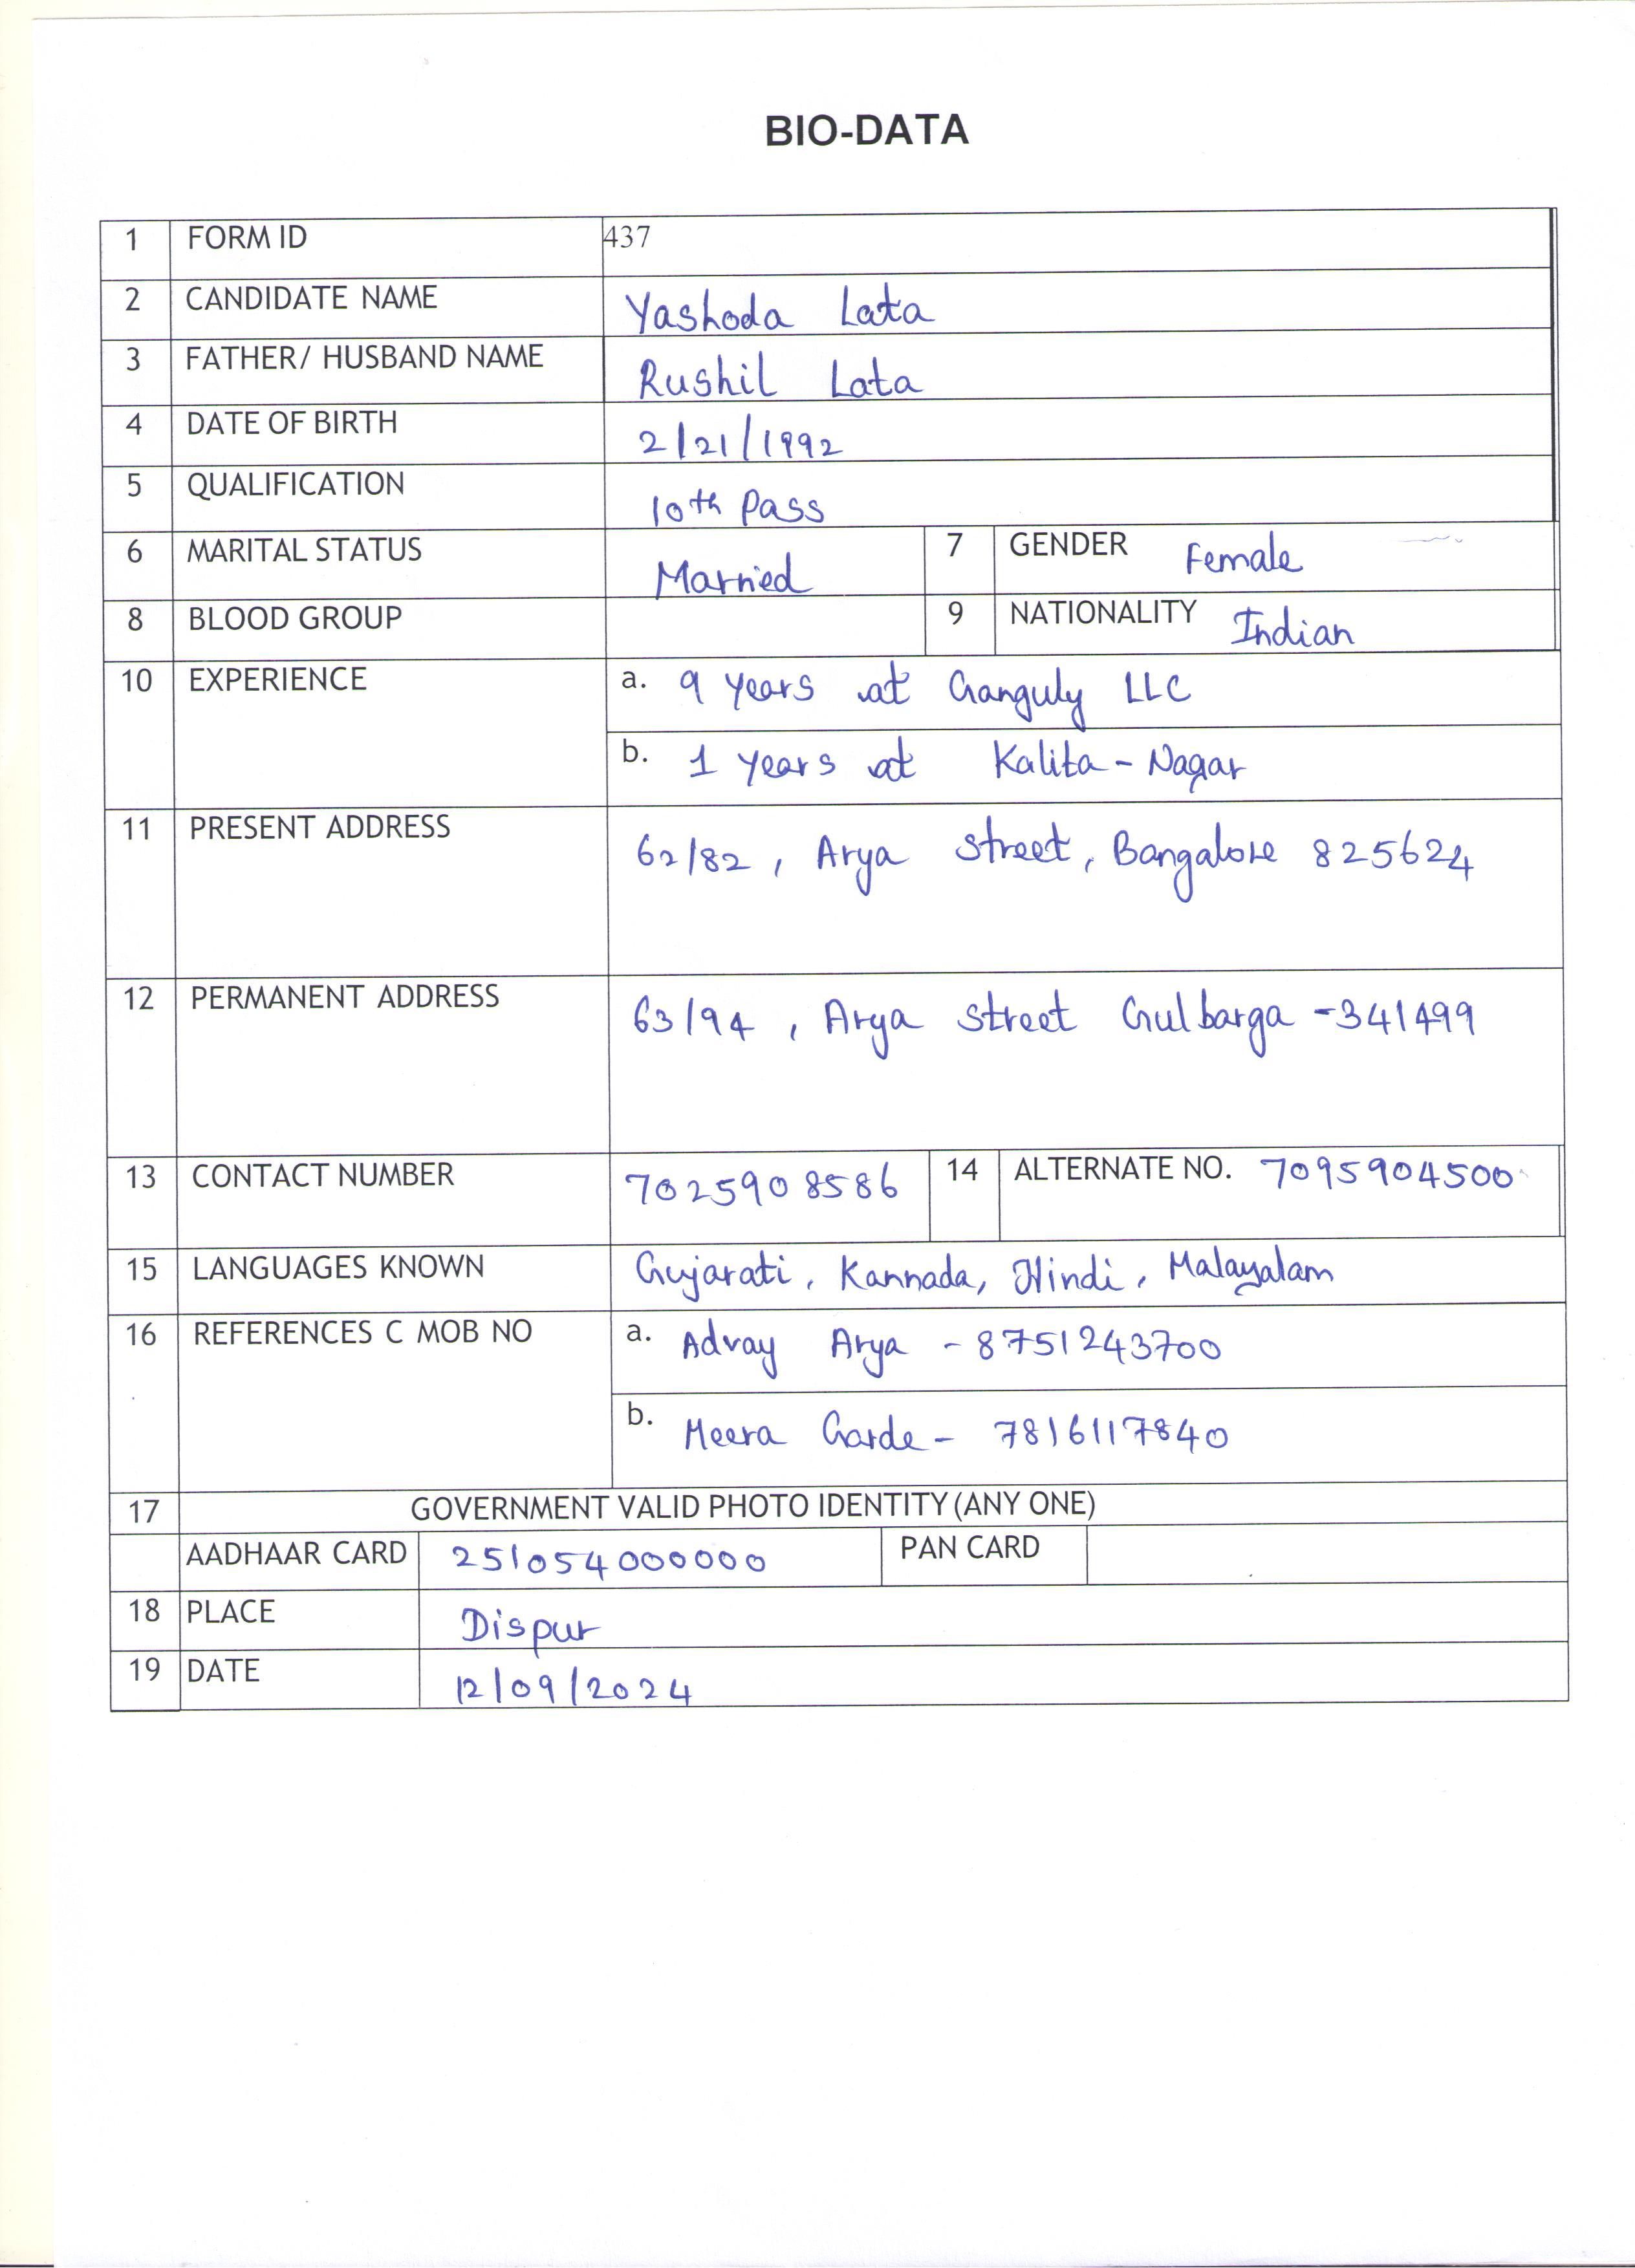 BIO-DATA
1 FORM ID 437
2 CANDIDATE NAME Yashoda Lata
3 FATHER/ HUSBAND NAME Rushil Lata
4 DATE OF BIRTH 2/21/1992
5 QUALIFICATION 10th Pass
6 MARITAL STATUS Married 7 GENDER Female
8 BLOOD GROUP 9 NATIONALITY Indian
10 EXPERIENCE a. 9 years at Ganguly LLC
b. 1 years at Kalita - Nagar
11 PRESENT ADDRESS 62/82, Arya Street, Bangalore 825624
12 PERMANENT ADDRESS 63/94, Arya Street Gulbarga - 341499
13 CONTACT NUMBER 7025908586 14 ALTERNATE NO. 7095904500
15 LANGUAGES KNOWN Gujarati, Kannada, Hindi, Malayalam
16 REFERENCES C MOB NO a. Advay Arya - 8751243700
b. Meera Garde - 7816117840
17 GOVERNMENT VALID PHOTO IDENTITY (ANY ONE)
AADHAAR CARD 251054000000 PAN CARD
18 PLACE Dispur
19 DATE 12/09/2024